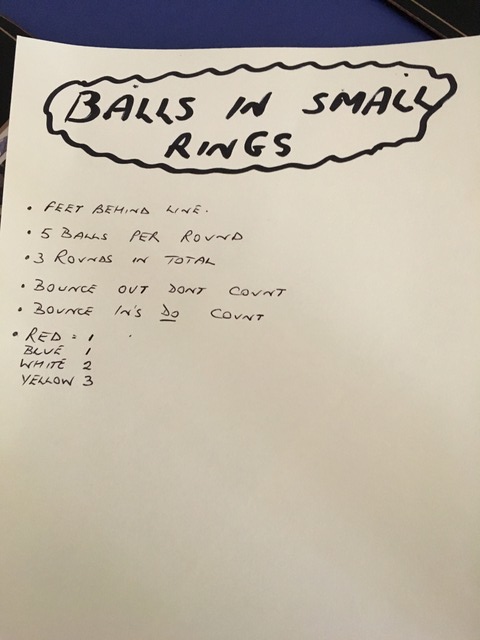 BALLS IN SMALL
RINGS
• FEET BEHIND LINE.
• 5 BALLS PER ROUND
• 3 ROUNDS IN TOTAL
• BOUNCE OUT DONT COUNT
• BOUNCE IN'S DO COUNT
• RED = 1
BLUE 1
WHITE 2
YELLOW 3